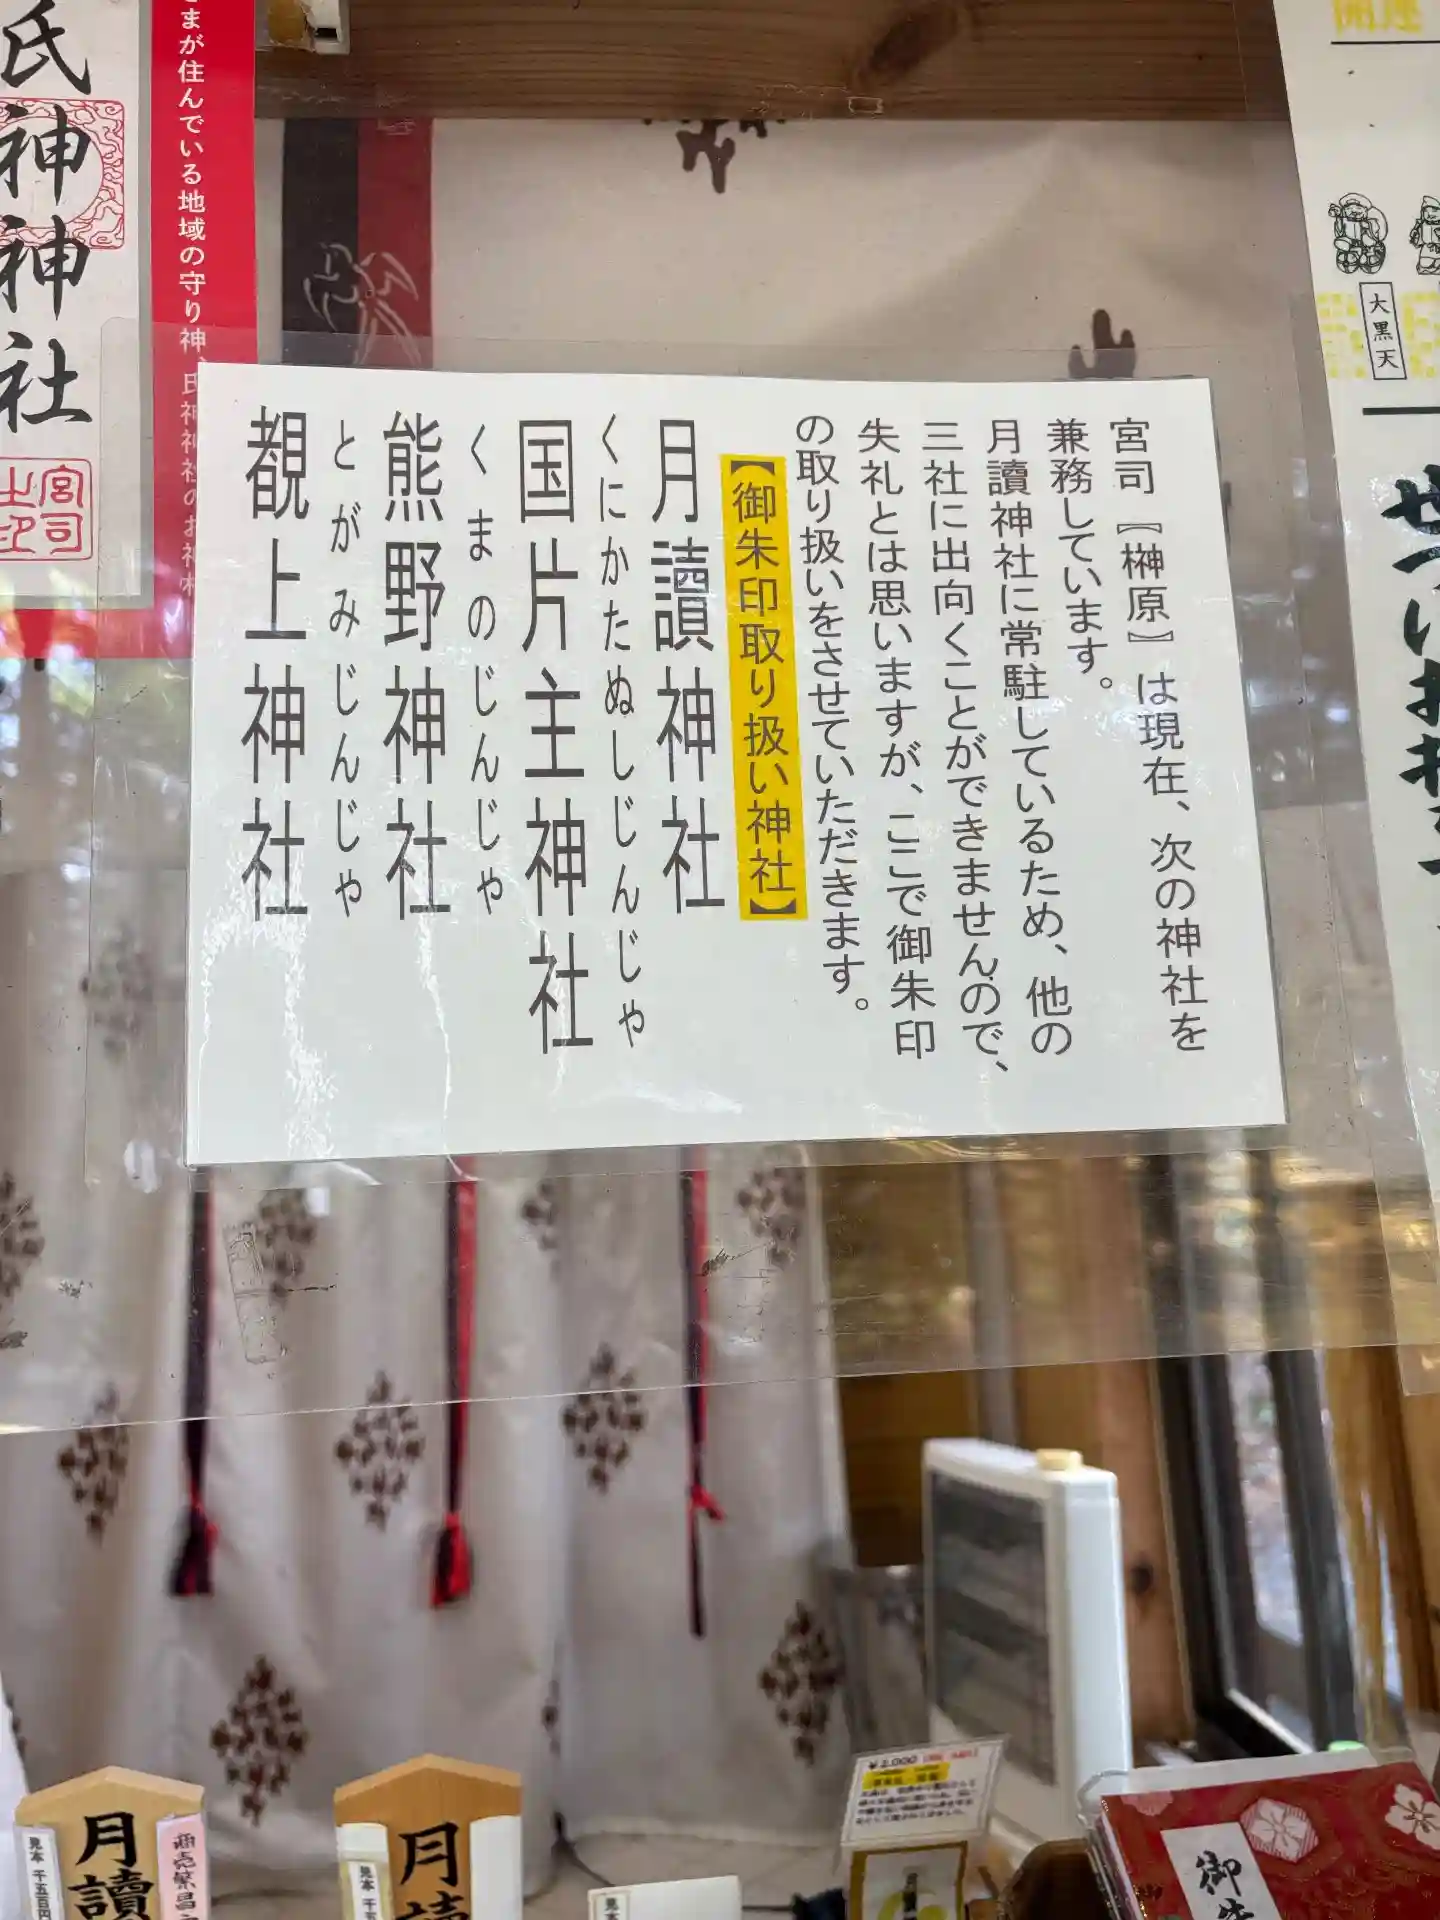 宮司【榊原】は現在、次の神社を
兼務しています。
月讀神社に常駐しているため、他の
三社に出向くことができませんので、
失礼とは思いますが、ここで御朱印
の取り扱いをさせていただきます。
【御朱印取り扱い神社】
月讀神社
くにかたぬしじんじゃ
国片主神社
くまのじんじゃ
熊野神社
とがみじんじゃ
覩上神社
大黒天
まが住んでいる地域の守り神、氏神神社のお神札
氏神神社
宮司
之印
月讀
見本 千五百円
商売繁昌
月讀
見本
見本
¥2,000
御朱